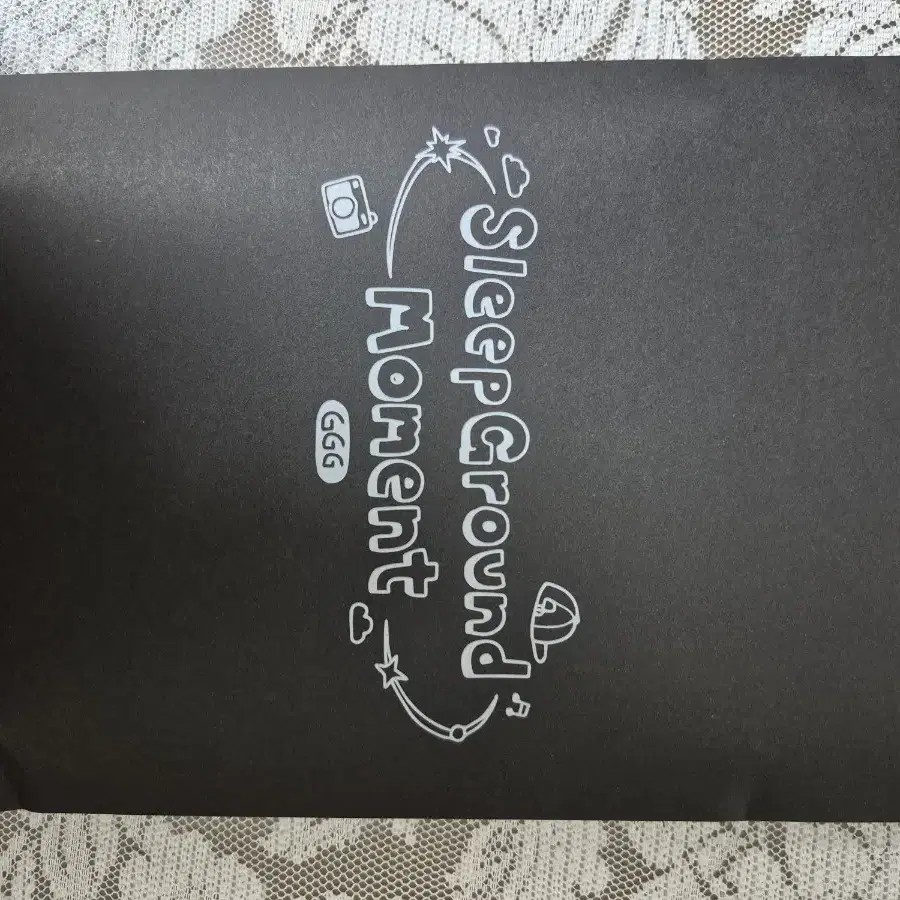 SleepGround
Moment
GGG